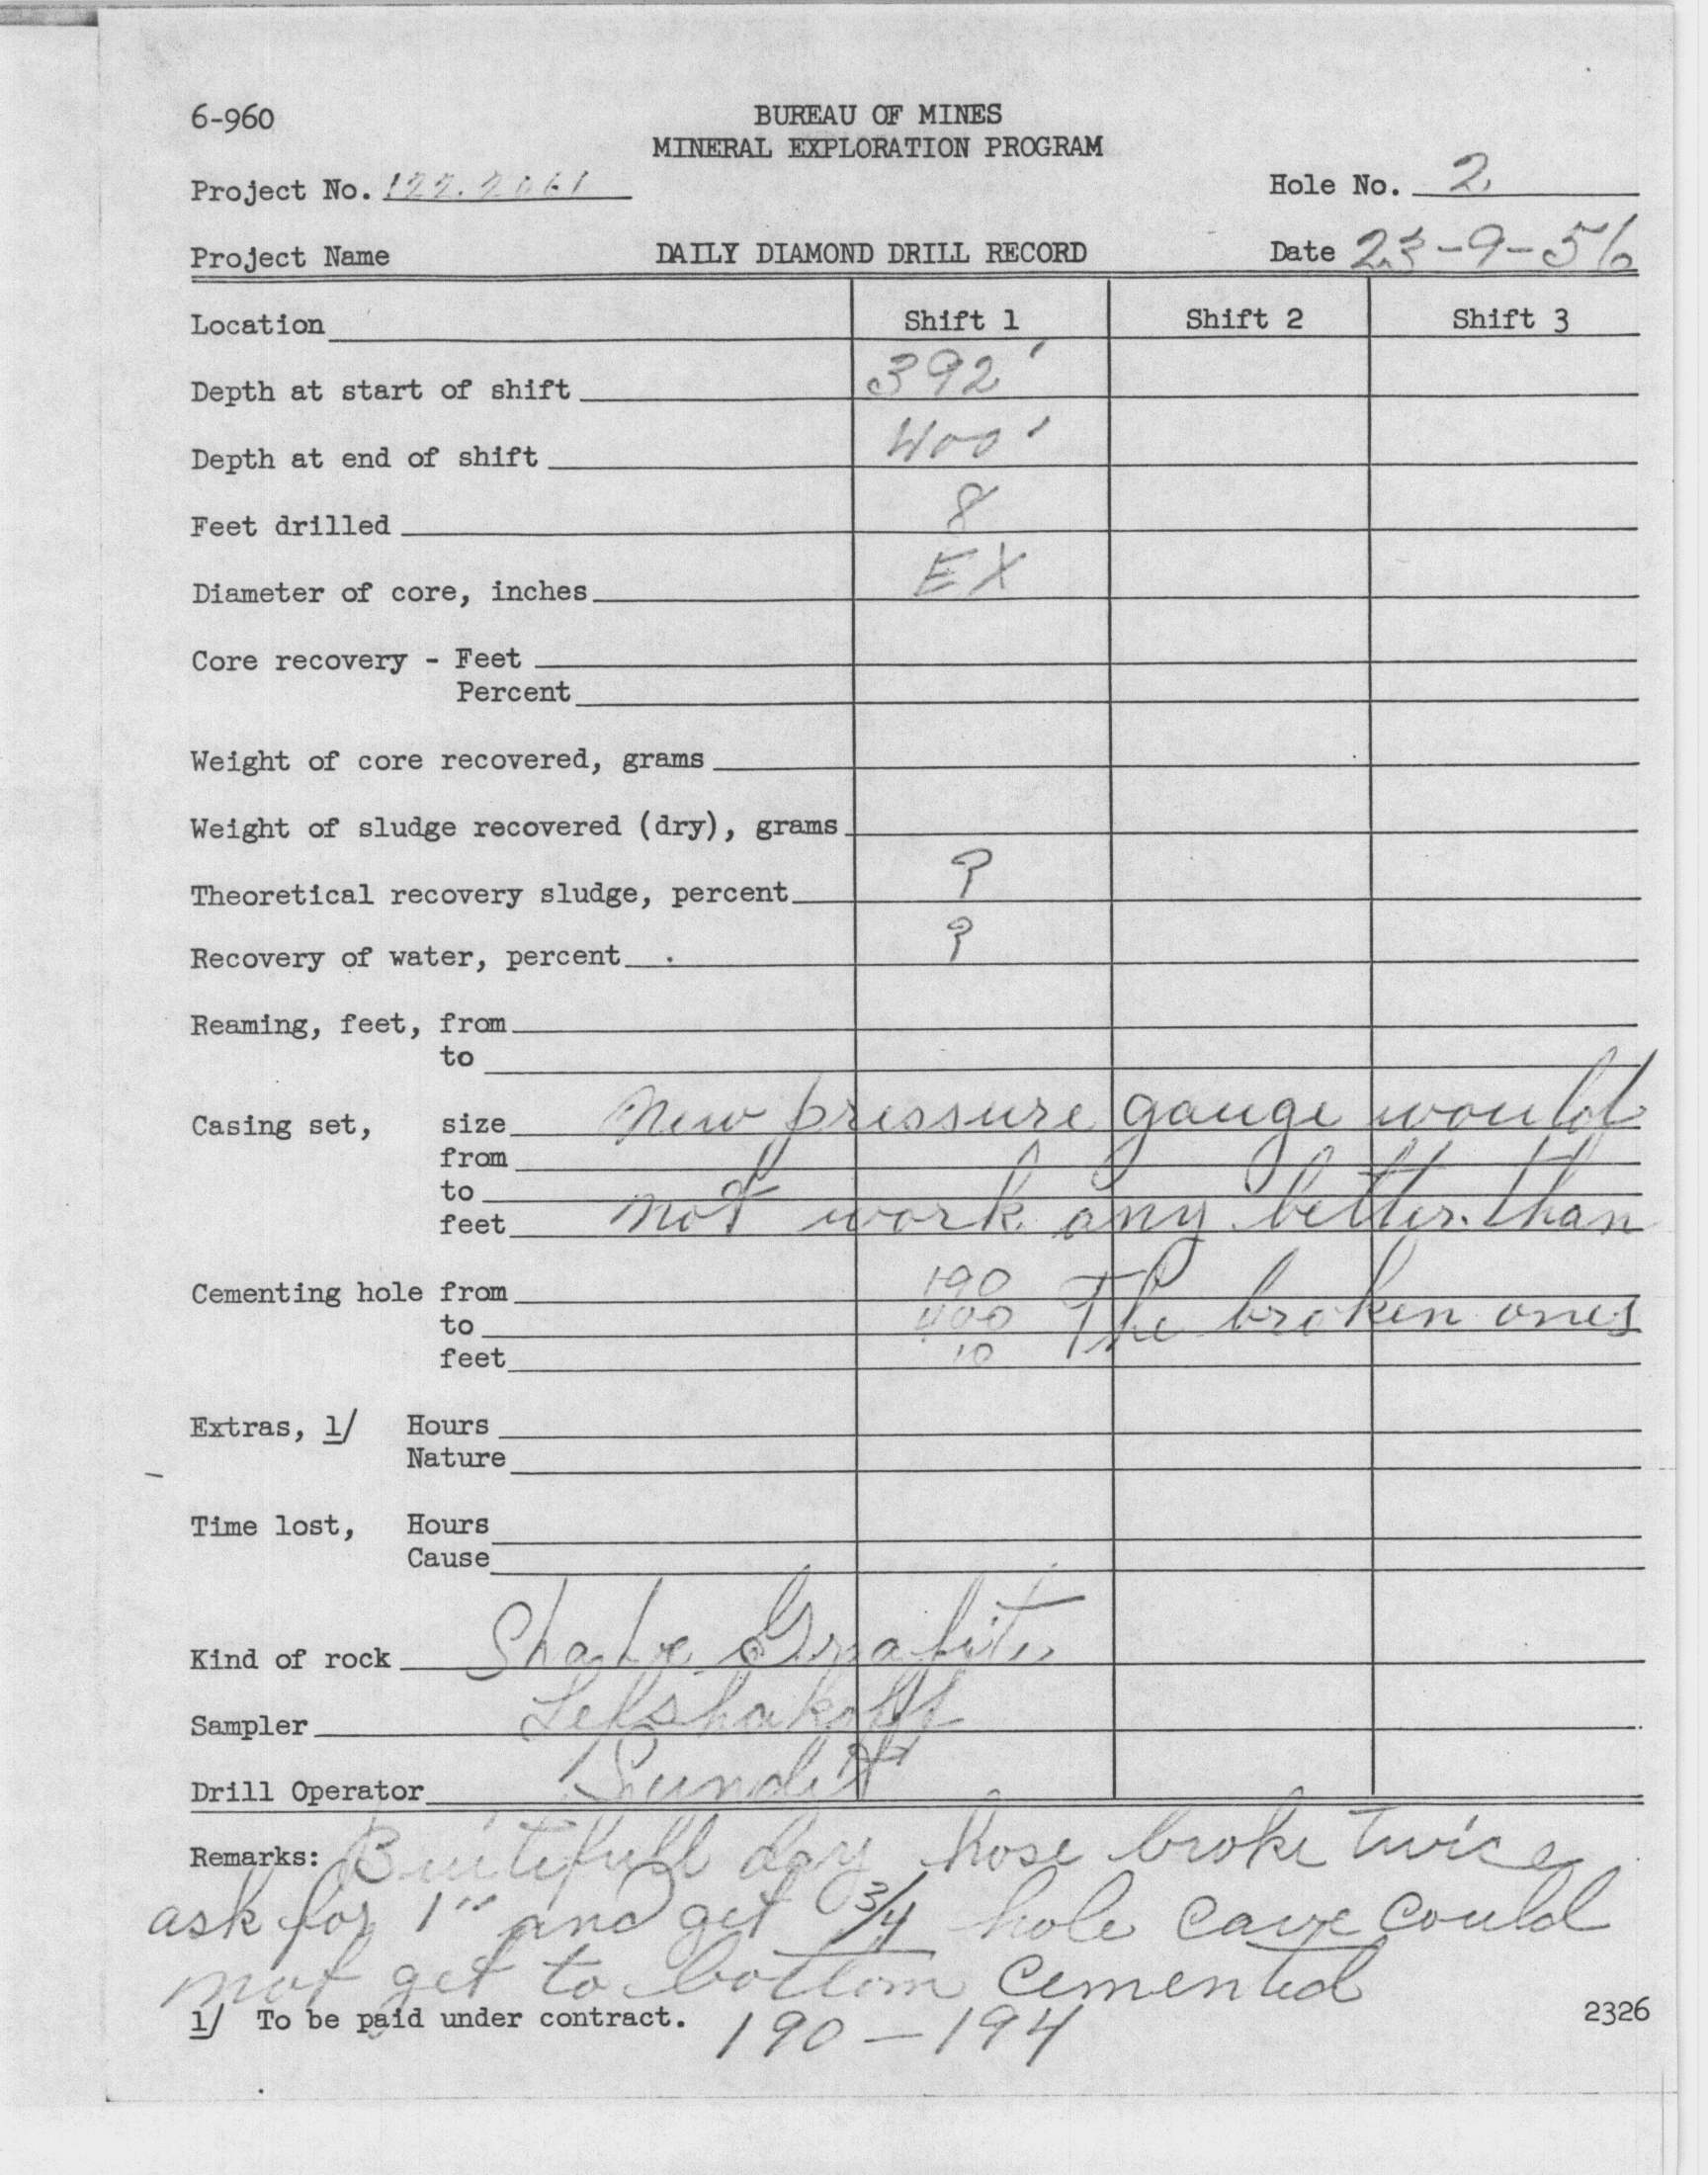 6-960
BUREAU OF MINES
MINERAL EXPLORATION PROGRAM
Project No. 122.2061
Hole No. 2
Project Name
DAILY DIAMOND DRILL RECORD
Date 23-9-56
Location
Shift 1 Shift 2 Shift 3
Depth at start of shift 392'
Depth at end of shift 400'
Feet drilled 8
Diameter of core, inches EX
Core recovery - Feet
Percent
Weight of core recovered, grams
Weight of sludge recovered (dry), grams
Theoretical recovery sludge, percent ?
Recovery of water, percent ?
Reaming, feet, from
to
Casing set, size New pressure gauge would
from
to
feet not work any better than
Cementing hole from 190
to 400 The broken ones
feet 10
Extras, 1/ Hours
Nature
Time lost, Hours
Cause
Kind of rock Shale Grafite
Sampler
Drill Operator
Remarks: Buitifull day hose broke twice
ask for 1" and get 3/4 hole cave could
not get to bottom cemented
1/ To be paid under contract. 190-194
2326